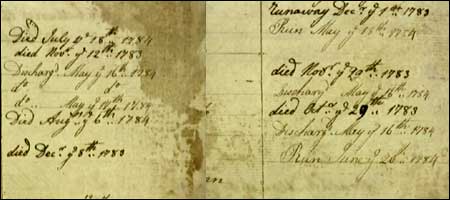 Died July ye 18th.. 1784
died Novr. ye 12th.. 1783
Discharg. May ye 16th.. 1784
do do
do.. May ye 17th.. 1784
Died Augt. ye 6th.. 1784
died Decr. ye 8th.. 1783
Runaway Decr. ye 1st 1783
Run May ye 18th.. 1784
died Novr. ye 29th.. 1783
Discharg May ye 16th 1784
died Octr. ye 29th.. 1783
Discharg.. May ye 16th 1784
Run June ye 26th.. 1784